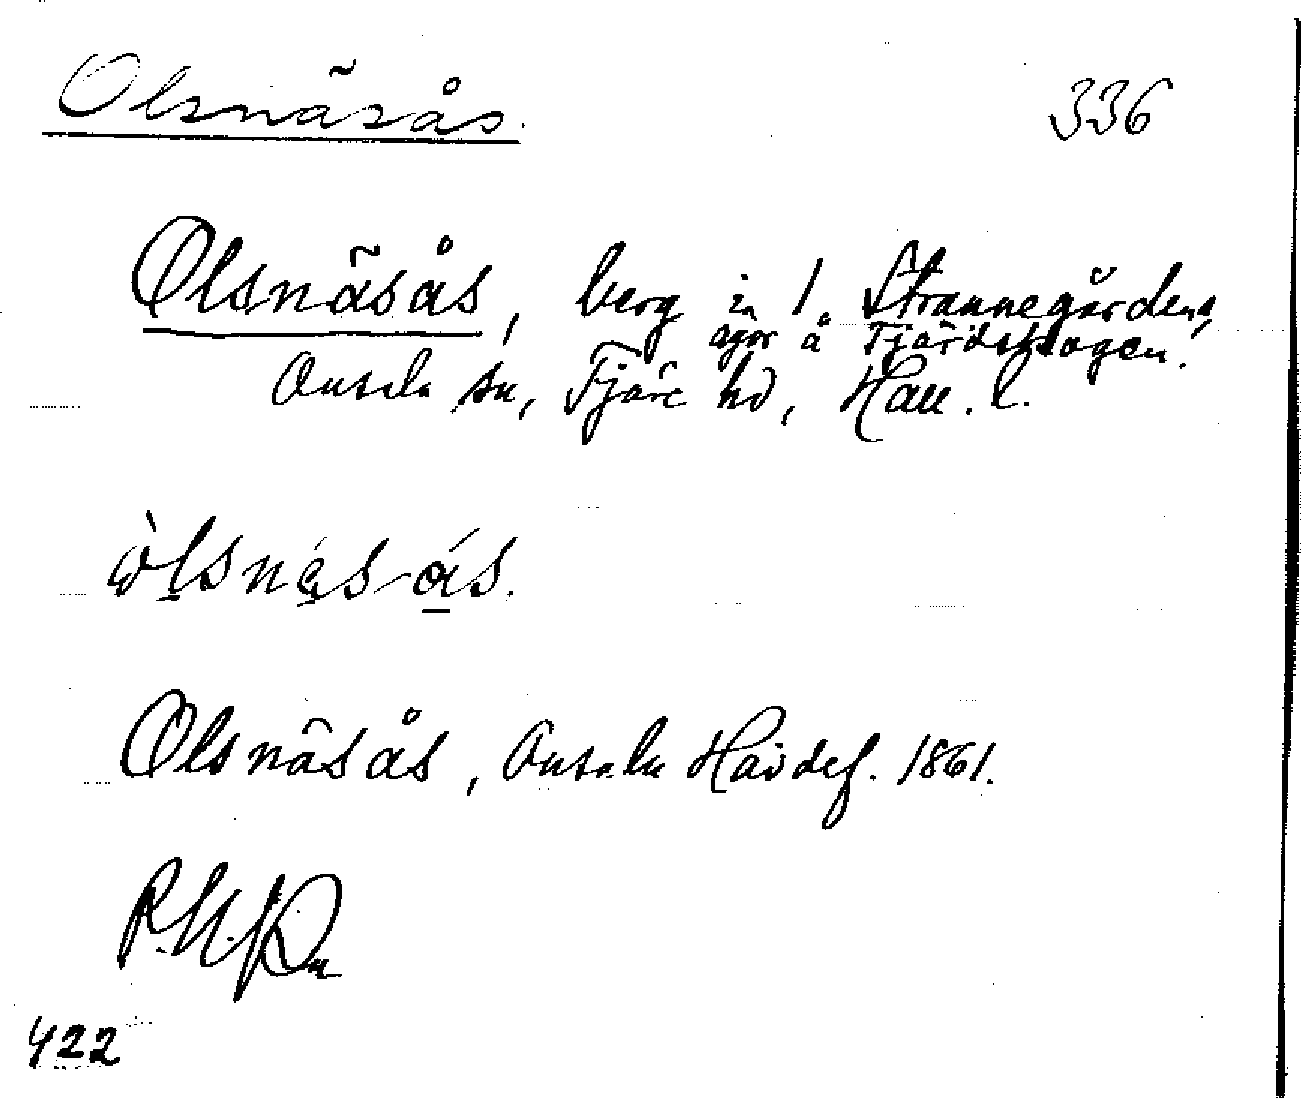 Olsnäsås. 336
Olsnäsås, berg in 1. Strannegårdens
ägor å Fjärdskogen.
Onsala sn, Fjäre hd, Hall. l.
òlsnä́s-ås.
Olsnäsås, Onsala Häidef. 1861.
422